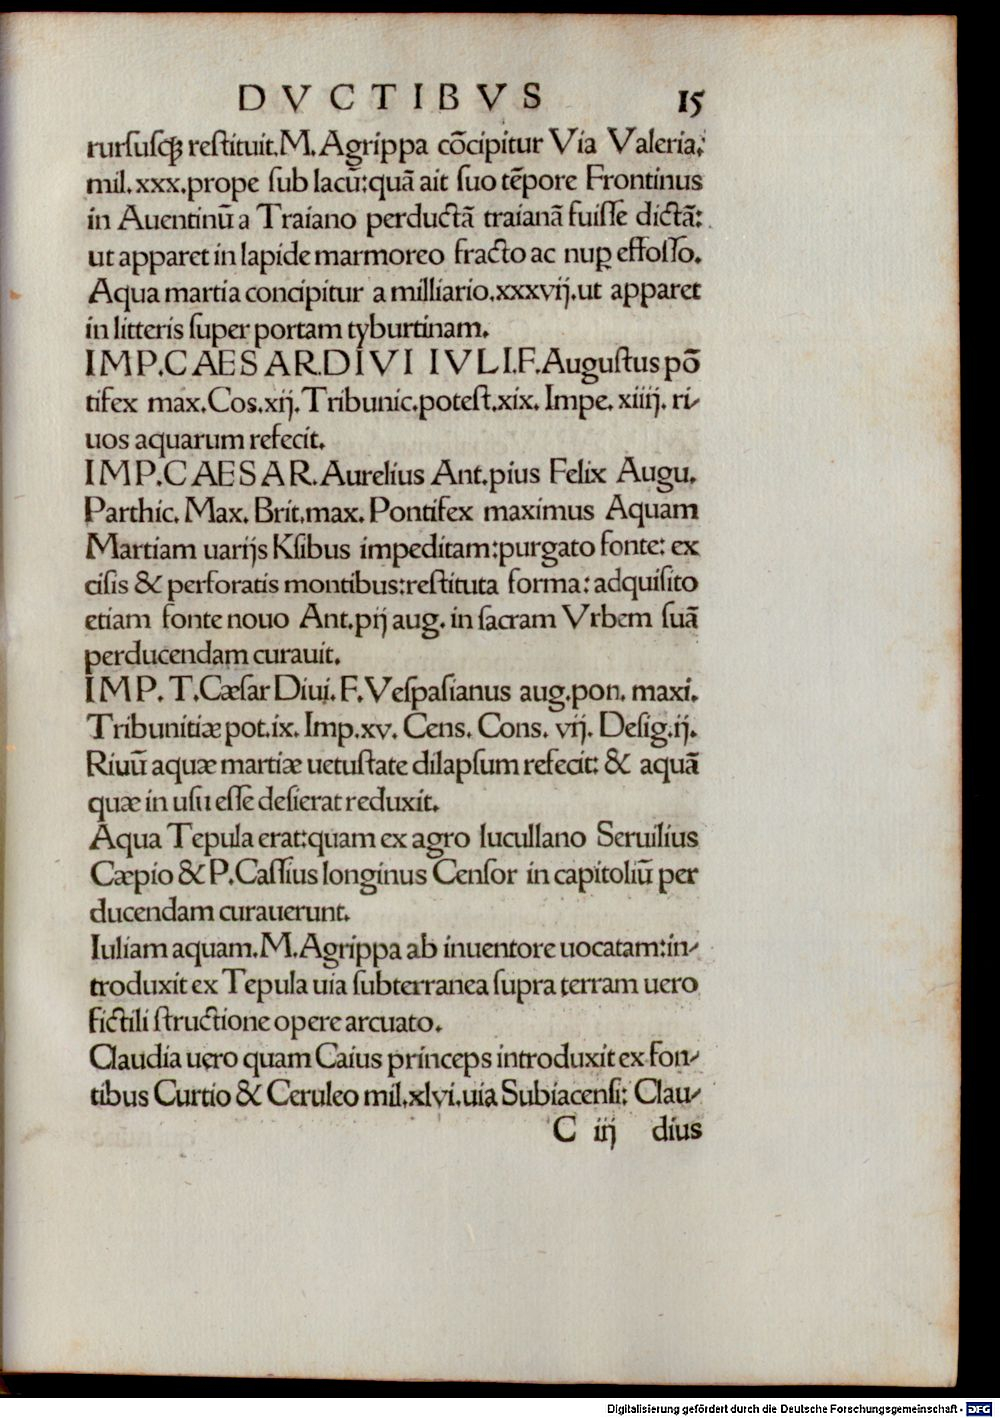 DVCTIBVS 15
rursusq̃ restituit.M.Agrippa cõcipitur Via Valeria:
mil.xxx.prope sub lacũ:quã ait suo tẽpore Frontinus
in Auentinũ a Traiano perductã traianã fuisse dictã:
ut apparet in lapide marmoreo fracto ac nuꝑ effosso.
Aqua martia concipitur a milliario.xxxvij.ut apparet
in litteris super portam tyburtinam.
IMP.CAESAR.DIVI IVLI.F.Augustus põ
tifex max.Cos.xij.Tribunic.potest.xix. Impe. xiiij. ri-
uos aquarum refecit.
IMP.CAESAR.Aurelius Ant.pius Felix Augu.
Parthic. Max. Brit.max. Pontifex maximus Aquam
Martiam uarijs Ksibus impeditam:purgato fonte: ex
cisis & perforatis montibus:restituta forma: adquisito
etiam fonte nouo Ant.pij aug. in sacram Vrbem suã
perducendam curauit.
IMP. T.Cæsar Diui. F.Vespasianus aug.pon. maxi.
Tribunitiæ pot.ix. Imp.xv. Cens. Cons. vij. Desig.ij.
Riuũ aquæ martiæ uetustate dilapsum refecit: & aquã
quæ in usu esse desierat reduxit.
Aqua Tepula erat:quam ex agro lucullano Seruilius
Cæpio & P.Cassius longinus Censor in capitoliũ per
ducendam curauerunt.
Iuliam aquam.M.Agrippa ab inuentore uocatam:in-
troduxit ex Tepula uia subterranea supra terram uero
fictili structione opere arcuato.
Claudia uero quam Caius princeps introduxit ex fon-
tibus Curtio & Ceruleo mil.xlvi.uia Subiacensi: Clau-
C iij dius
Digitalisierung gefördert durch die Deutsche Forschungsgemeinschaft - DFG